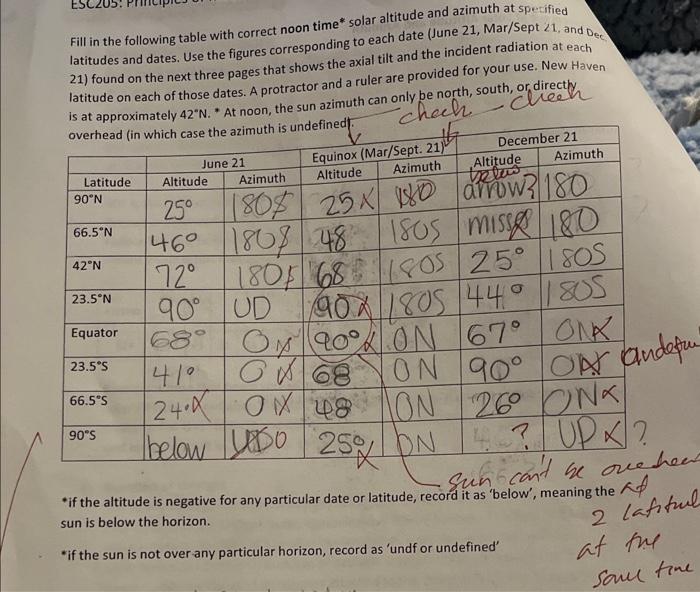 ESC205:
Fill in the following table with correct noon time* solar altitude and azimuth at specified
latitudes and dates. Use the figures corresponding to each date (June 21, Mar/Sept 21, and Dec
21) found on the next three pages that shows the axial tilt and the incident radiation at each
latitude on each of those dates. A protractor and a ruler are provided for your use. New Haven
is at approximately 42°N. * At noon, the sun azimuth can only be north, south, or directly
overhead (in which case the azimuth is undefined).
check check
June 21 Equinox (Mar/Sept. 21) December 21
Latitude Altitude Azimuth Altitude Azimuth Altitude Azimuth
below
90°N 25° 180S 25 X 180 arrow? 180
66.5°N 46° 180S 48 180S miss 180
42°N 72° 180S 68 180S 25° 180S
23.5°N 90° UD 90 X 180S 44° 180S
Equator 68° 0N 90° X 0N 67° 0N X
23.5°S 41° 0N 68 0N 90° 0N
66.5°S 24. X 0N 48 0N 26° 0N X
90°S below 25° X 0N ? UP X ?
sun can't be overhead
*if the altitude is negative for any particular date or latitude, record it as 'below', meaning the
at
sun is below the horizon.
2
at the
*if the sun is not over any particular horizon, record as 'undf or undefined'
same time